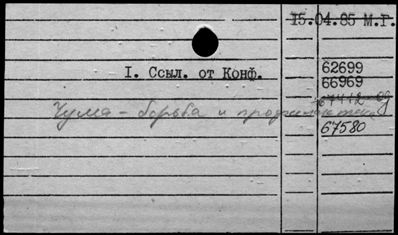 15.04.85 М.Г.
I. Ссыл. от Конф.
62699
66969
67412
Чума - борьба и профилактика
67580